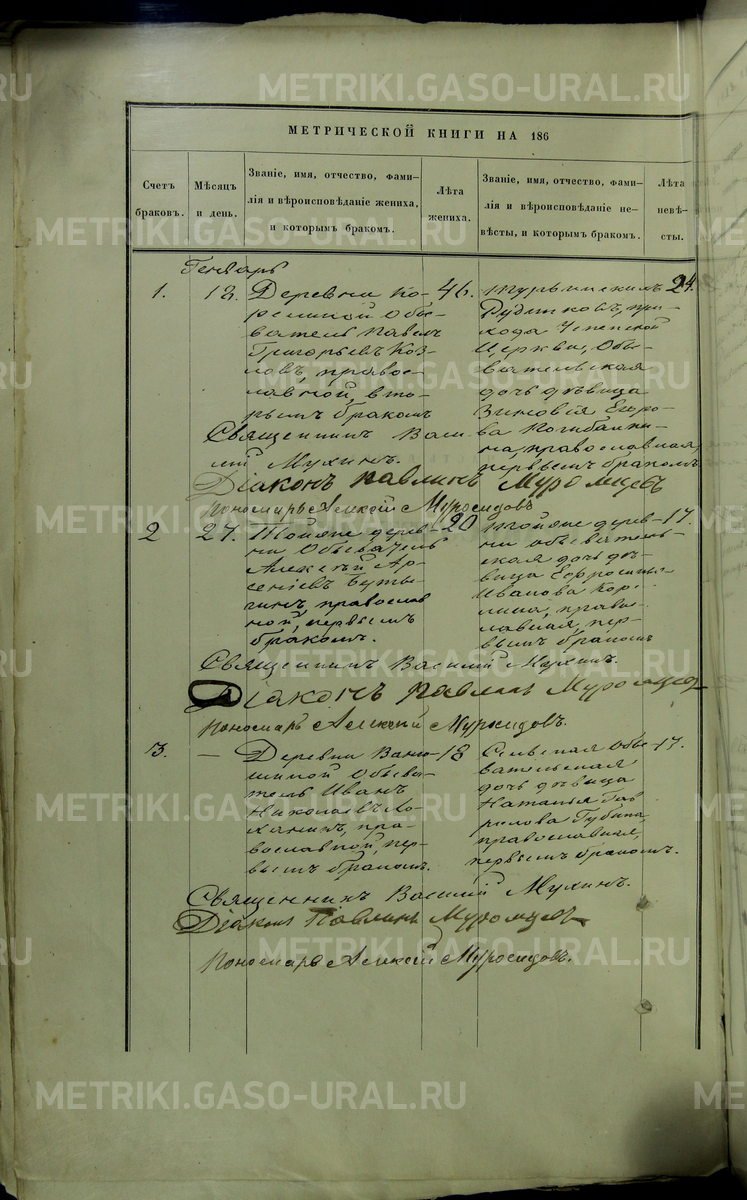 МЕТРИЧЕСКОЙ КНИГИ НА 186
Счетъ браковъ.
Мѣсяцъ и день.
Званіе, имя, отчество, фами-
лія и вѣроисповѣданіе жениха,
и которымъ бракомъ.
Лѣта жениха.
Званіе, имя, отчество, фами-
лія и вѣроисповѣданіе не-
вѣсты, и которымъ бракомъ.
Лѣта невѣ-
сты.
Генварь
1.
12.
Деревни Ко-
релиной Обы-
ватель Павелъ
Григорьевъ Коз-
ловъ, правос-
лавной, вто-
рымъ бракомъ
46.
Турьинскихъ
Рудниковъ, при-
хода
Церкви, Обы-
вательская
дочь дѣвица
Зиновія Егоро-
ва Погибалки-
на, православная,
первымъ бракомъ
24.
Священникъ Васи-
лій Мухинъ.
Діаконъ Павлинъ Муромцевъ
Пономарь Алексѣй
2
27.
деревни
ни Обыватель
Алексѣй Ар-
сеніевъ Буты-
гинъ, православ
ной, первымъ
бракомъ.
20
дерев-
ни обыватель-
ская дочь дѣ-
вица Ефросинья
Иванова Кор-
лина, право-
славная, пер-
вымъ бракомъ
17.
Священникъ Василій Мухинъ.
Діаконъ Павлинъ Муромцев
Пономарь Алексѣй
3.
—
Деревни Ваню-
шиной Обыва-
тель Иванъ
Николаевъ Ло-
ханинъ, пра-
вославной, пер-
вымъ бракомъ.
18
Сельская Обы-
вательская
дочь дѣвица
Наталья Гав
рилова Губина,
православная,
первымъ бракомъ.
17.
Священникъ Василій Мухинъ.
Діаконъ Павлинъ Муромцевъ
Пономарь Алексѣй
METRIKI.GASO-URAL.RU